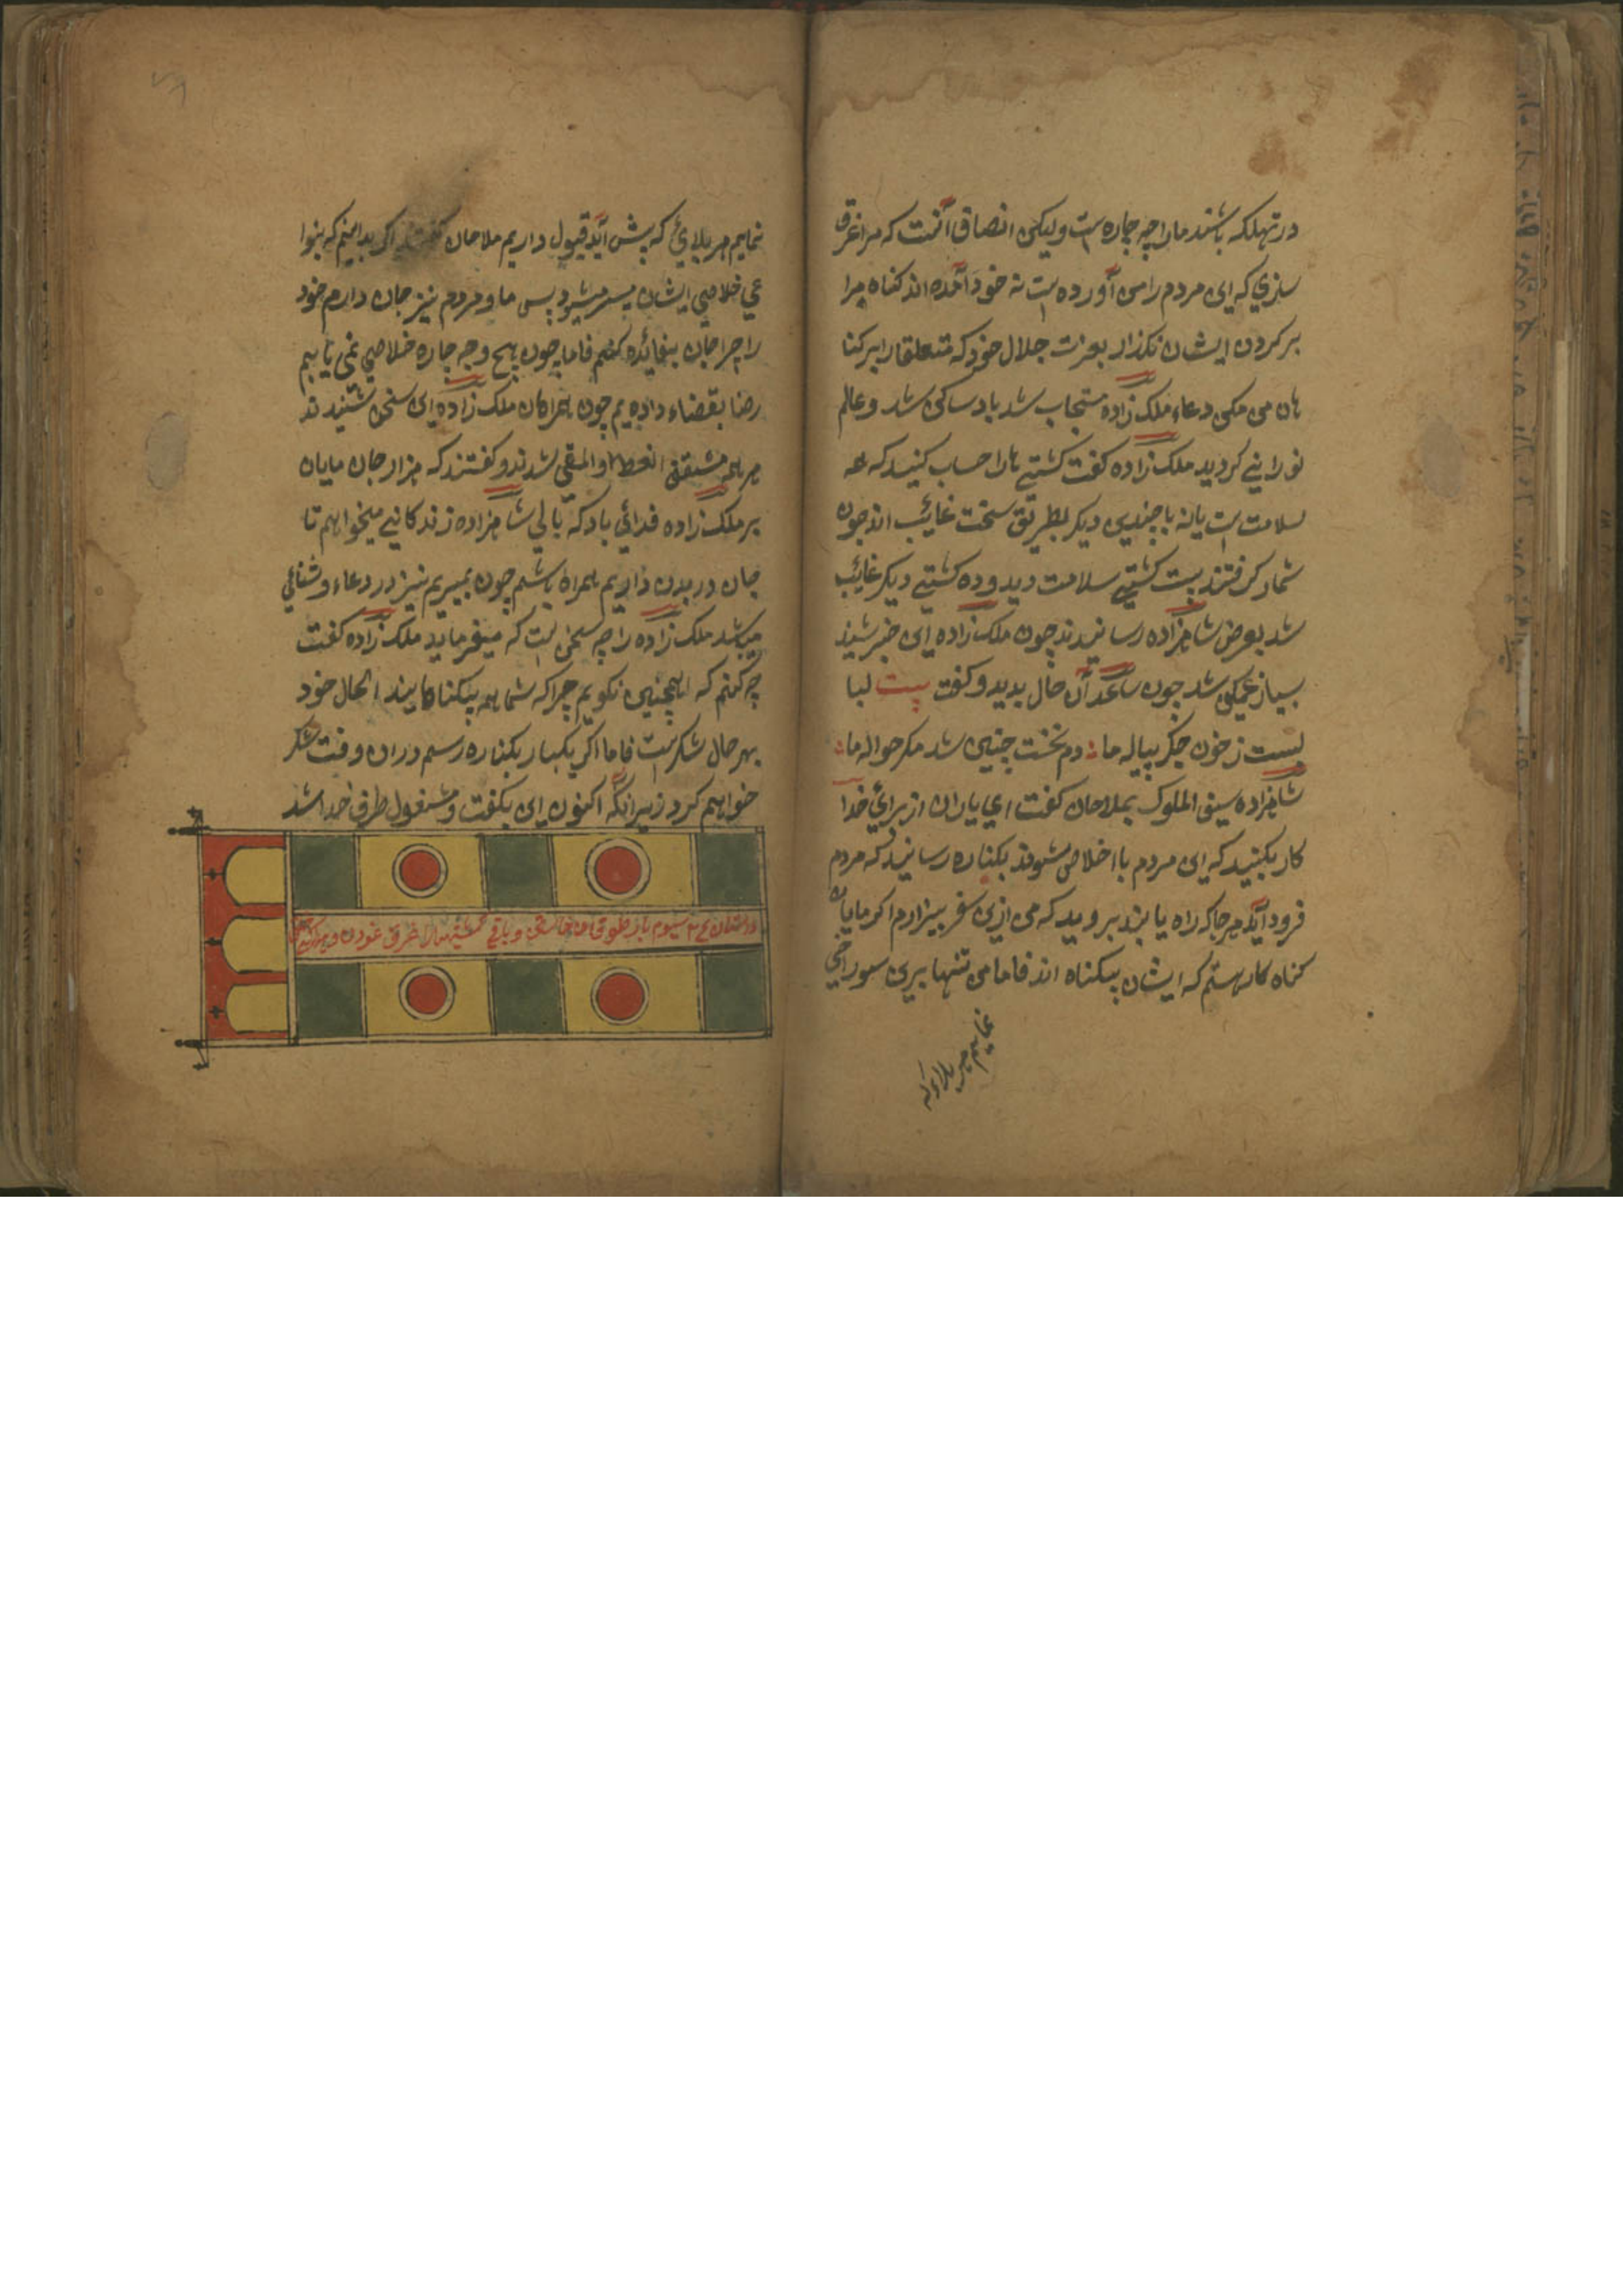 در تهلکه باشند مارا چه چاره است ولیکن انصاف آنست که مرا غرق
سازی که این مردم را من آورده است نه خود آمده اند کناه مرا
بر کردن ایشان نکذار بعزت جلال خود که متعلقان ابر کنا
هان من مکن دعاء ملک زاده مستجاب شد باد ساکن شد و عالم
نورانی کردید ملک زاده کفت کشتی هان احساب کنید که همه
سلامت است یا نه با چندین دیکر بطریق سخت غائب اند چون
شمار کرفتند بیست کشتی سلامت دید و ده کشتی دیکر غائب
شد بعرض شاهزاده رسانیدند چون ملک زاده این خبر شنید
بسیار غمکین شد چون ساعد آن حال بدید و کفت بیت لبا
لبست ز خون جکر پیاله ما : دم نخست چنین شد مکر حواله ما :
شاهزاده سیف الملوک بملاحان کفت ای یاران از برائی خدا
کار بکنید که این مردم با اخلاص شوند بکناره رسانید که مردم
فرود آید هر جا که راه یابند بروید که من ازین سفر بیزارم اکر مایان
کناه کار هستم که ایشان بیکناه اند فاما من تنها برین سوراخی
نمایم هر بلاء که
نمایم هر بلائی که پیش آید قبول داریم ملاحان کفتند اکر بدانیم که بنوا
عی خلاصی ایشان میسر میشود پس ما و مردم نیز جان دارم خود
را چرا جان بیفائده کنیم فاما چون هیچ وجه چاره خلاصی نمی یابیم
رضا بقضاء دادیم چون همراهان ملک زاده این سخن شنیدند
هر همه متفق اللفظ والمعنی شدند و کفتند که هزار جان مایان
بر ملک زاده فدائی باد که بالی شاهزاده زندکانی میخواهم تا
جان در بدن داریم همراه باشم چون بمیریم نیز در دعاء و ثنائی
میباشد ملک زاده را چه سخن است که میفرماید ملک زاده کفت
چه کنم که اینچنین نکویم چرا که شما همه بیکناهانید الحال خود
بهر حال شکر است فاما اکر یکبار بکناره رسم دران وقت شکر
خواهم کرد زیرانکه اکنون این بکفت و مشغول طرف خدا شد
داستان ۲۳ سیوم باز طوفان خاستن و باقی کشتیها را غرق نمودن و